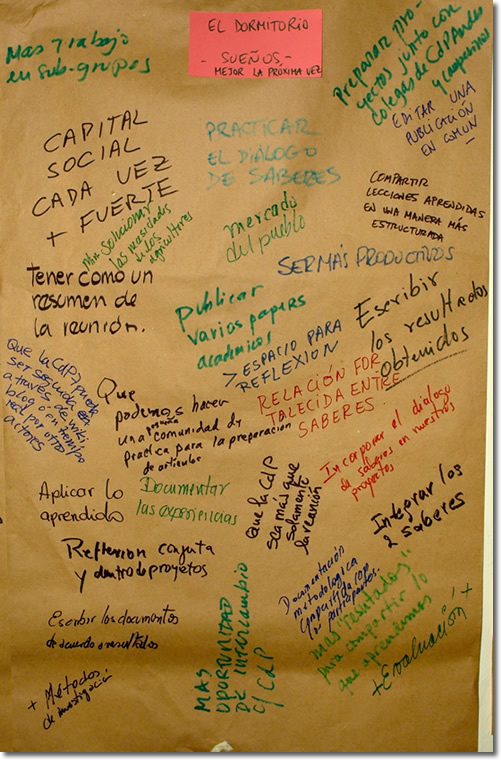 EL DORMITORIO
- SUEÑOS -
- MEJOR LA PRÓXIMA VEZ
Mas Trabajo
en sub-grupos
Preparar pro-
yectos junto con
colegas de CdP Andes
y campesinos
EDITAR UNA
PUBLICACIÓN
EN COMUN -
CAPITAL
SOCIAL
CADA VEZ
+ FUERTE
PRACTICAR
EL DIÁLOGO
DE SABERES
COMPARTIR
LECCIONES APRENDIDAS
EN UNA MANERA MÁS
ESTRUCTURADA
Mas solucionar
las necesidades
de los
agricultores
mercado
del pueblo
SER MÁS PRODUCTIVOS
tener como un
resumen de
la reunión.
Publicar
varios papers
académicos
Escribir
los resultados
obtenidos
> ESPACIO PARA
REFLEXION
que la CdP pueda
ser seguida
a través de wiki
blog ó en tiempo
real por otros
actores
Que
podamos hacer
una pequeña comunidad de
practica para la preparación
de articulos
RELACIÓN FOR
TALECIDA ENTRE
SABERES
Incorporar el dialogo
de saberes en nuestros
proyectos
Aplicar lo
aprendido
Documentar
las experiencias
que la CdP
sea más que
solamente
la reunión
Integrar los
2 saberes
Reflexion conjuta
y dentro de proyetos
Documentación
metodologica
participantes.
Escribir los documentos
de acuerdo a resultados
MAS
OPORTUNIDAD
DE INTERCAMBIO
C/ CdP
mas "resultados"
para compartir lo
que aprendemos
+ Evaluación +
+ Métodos.
de investigación